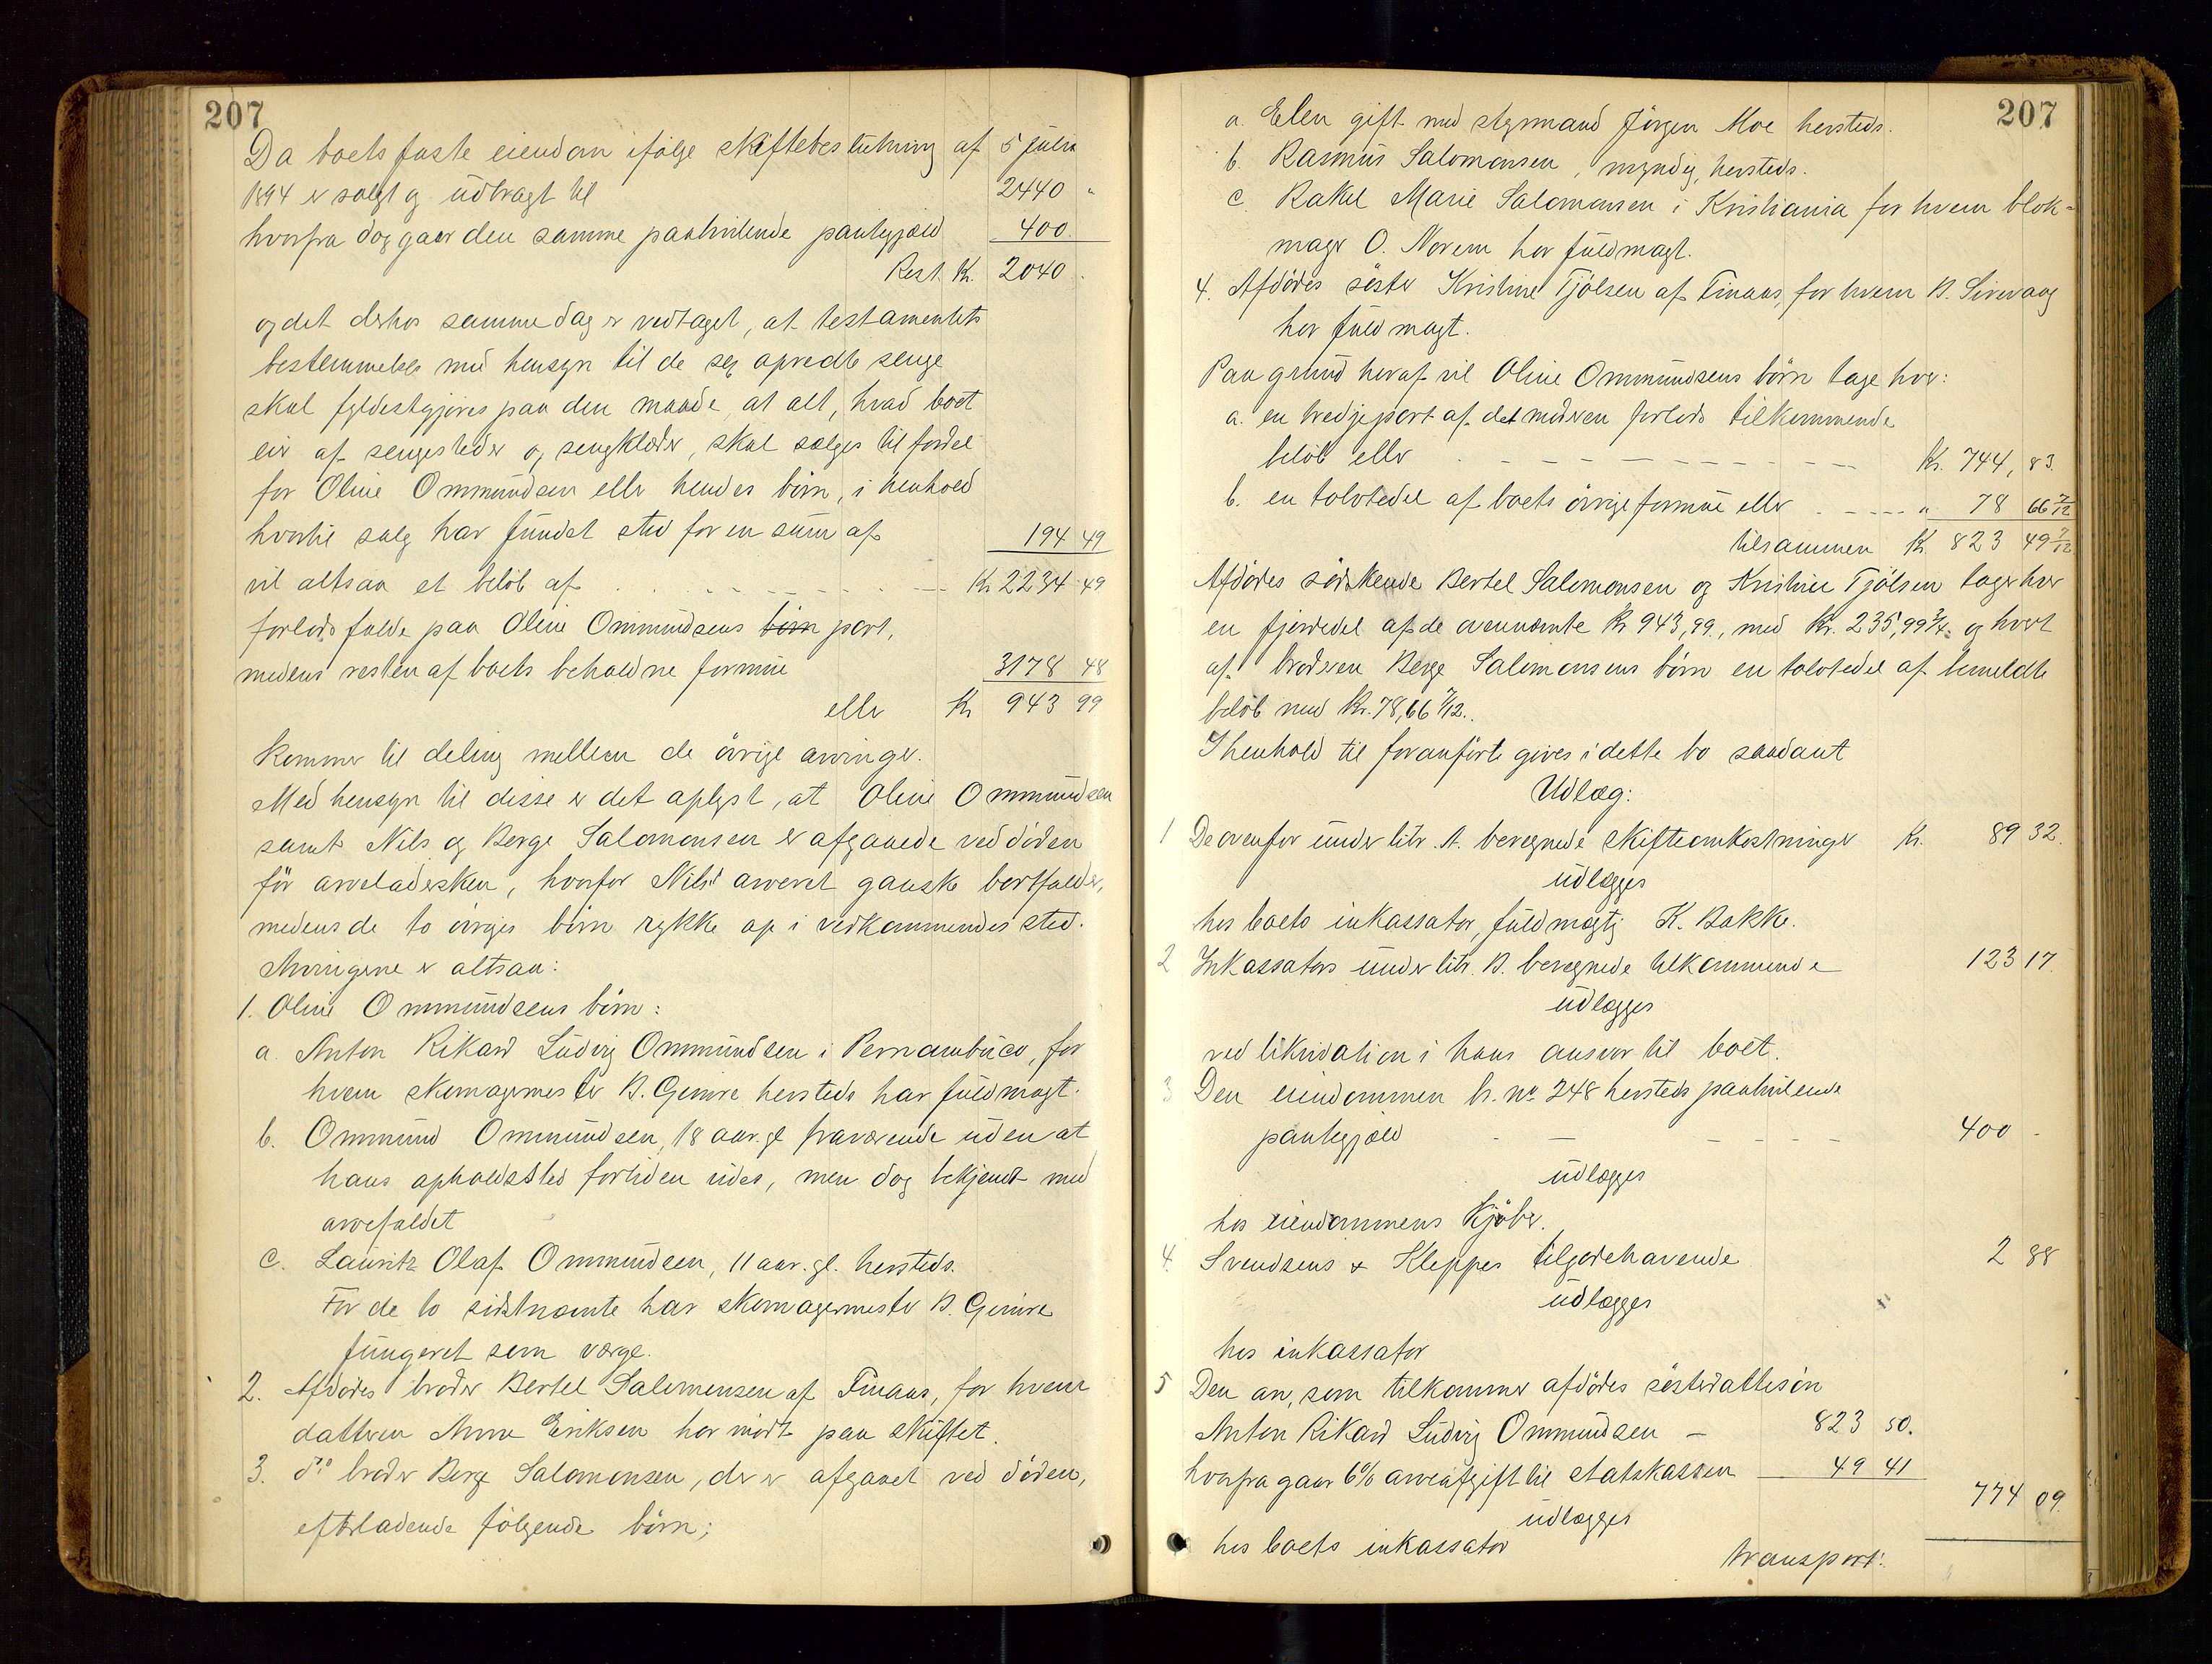 207
Da boets faste eiendom ifölge skiftebeslutning af 5 juli
1894 er solgt og udbragt til 2440 "
hvorfra dog gaar den samme paahvilende pantegjæld 400.
Rest Kr. 2040.
og det derhos samme dag er vedtaget, at testamentets
bestemmelse med hensyn til de sex opredte senge
skal fyldestgjöres paa den maade, at alt, hvad boet
eier af sengesteder og sengklæder, skal sælges til fordel
for Oline Ommundsen eller hendes börn, i henhold
hvortil salg har fundet sted for en sum af 194 49
vil altsaa et belöb af Kr 2234 49
forlods falde paa Oline Ommundsens börn part,
medens resten af boets beholdne formue 3178 48
eller Kr 943 99
kommer til deling mellem de övrige arvinger.
Med hensyn til disse er det oplyst, at Oline Ommundsen
samt Nils og Berge Salomonsen er afgaaede ved döden
för arveladersken, hvorfor Nils's arveret ganske bortfalder,
medens de to övriges börn rykke op i vedkommendes sted.
Arvingerne er altsaa:
1. Oline Ommundsens börn:
a. Anton Rikard Ludvig Ommundsen i Pernambuco, for
hvem skomagermester B. Gjemre hersteds har fuldmagt.
b. Ommund Ommundsen, 18 aar gl fraværende uden at
hans opholdssted fortiden vides, men dog bekjendt med
arvefaldet
c. Lauritz Olaf Ommundsen, 11 aar. gl. hersteds.
For de to sidstnævnte har skomagermester B. Gjemre
fungeret som værge.
2. Afdödes broder Bertel Salomonsen af Finaas, for hvem
datteren Anne Eriksen har mödt paa skiftet.
3. do broder Berge Salomonsen, der er afgaaet ved döden,
efterladende fölgende börn;
207
a. Elen gift med styrmand Jörgen Moe hersteds.
b. Rasmus Salomonsen, myndig, hersteds.
c. Rakel Marie Salomonsen i Kristiania for hvem blok=
mager O. Norem har fuldmagt.
4. Afdödes söster Kristine Tjölsen af Finaas, for hvem B. Sirevaag
har fuldmagt.
Paa grund heraf vil Oline Ommundsens börn tage hver:
a. en tredjepart af det moderen forlods tilkommende
belöb eller Kr. 744, 83.
b. en tolvtedel af boets övrige formue eller " 78 66 7/12
tilsammen Kr. 823 49 7/12
Afdödes södskende Bertel Salomonsen og Kristine Tjölsen tager hver
en fjerdedel af de ovennævnte Kr 943,99, med Kr. 235,99 3/4 og hvert
af broderen Berge Salomonsens börn en tolvtedel af bemeldte
belöb med Kr. 78,66 7/12.
I henhold til foranförte gives i dette bo saadant
Udlæg:
1 De ovenfor under litr. A. beregnede skifteomkostninger Kr. 89 32.
udlægges
hos boets inkassator, fuldmægtig K. Bakke.
2 Inkassators under litr. B. beregnede tilkommende 123 17.
udlægges
ved likvidation i hans ansvar til boet.
3 Den eiendommen br. no 248 hersteds paahvilende
pantegjæld 400 -
udlægges
hos eiendommens Kjöber.
4. Svendsens & Kleppes tilgodehavende 2 88
udlægges
hos inkassator
5 Den arv, som tilkommer afdödes sösterdattersön
Anton Rikard Ludvig Ommundsen - 823 50.
hvorfra gaar 6% arveafgift til statskassen 49 41
774 09
udlægges
hos boets inkassator
transport: